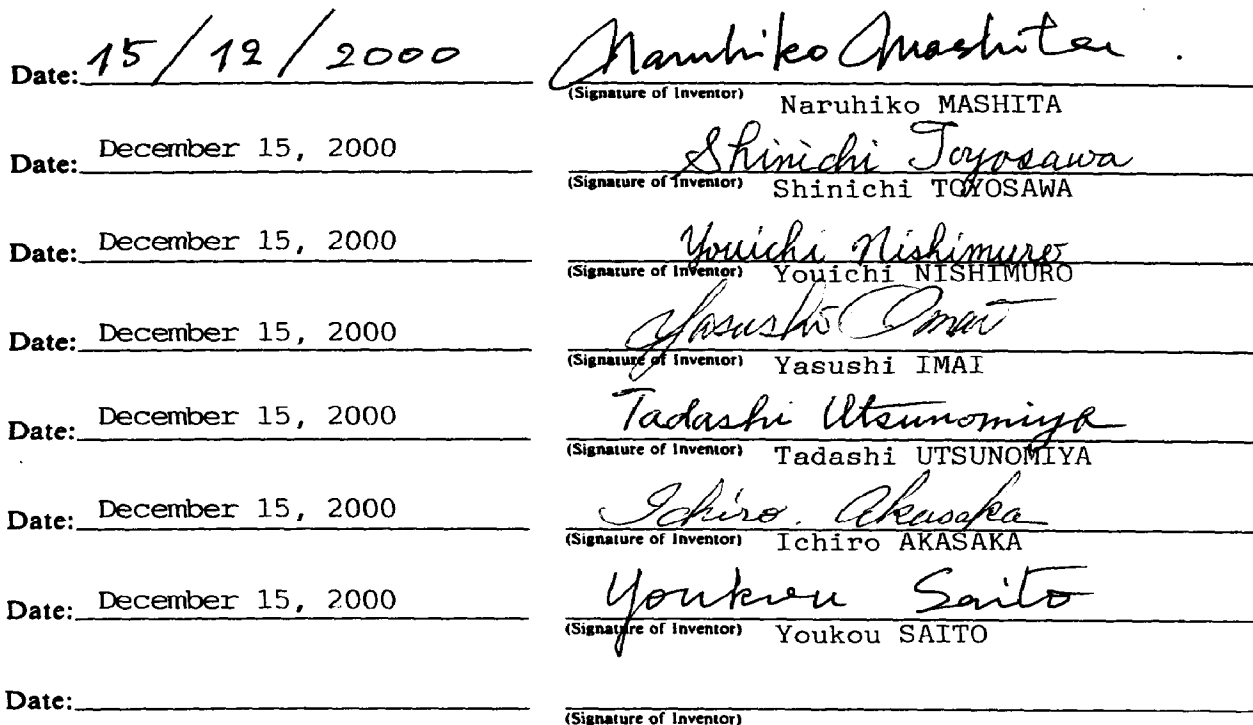 Date: 15/12/2000 Naruhiko Mashita.
(Signature of Inventor) Naruhiko MASHITA
Date: December 15, 2000 Shinichi Toyosawa
(Signature of Inventor) Shinichi TOYOSAWA
Date: December 15, 2000 Youichi Nishimuro
(Signature of Inventor) Youichi NISHIMURO
Date: December 15, 2000 Yasushi Imai
(Signature of Inventor) Yasushi IMAI
Date: December 15, 2000 Tadashi Utsunomiya
(Signature of Inventor) Tadashi UTSUNOMIYA
Date: December 15, 2000 Ichiro. Akasaka
(Signature of Inventor) Ichiro AKASAKA
Date: December 15, 2000 Youkou Saito
(Signature of Inventor) Youkou SAITO
Date:
(Signature of Inventor)